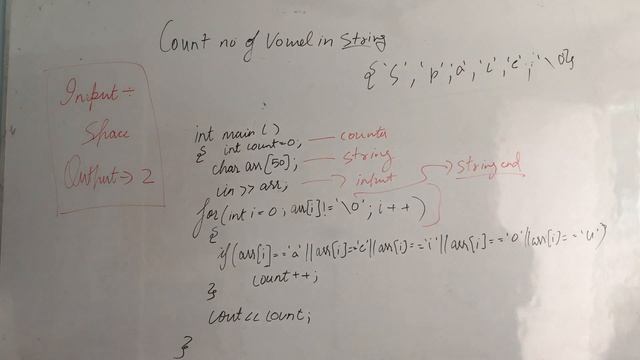 Count no of Vowel in String
{'S','p','a','c','e','\0'}
Input:-
Space
Output → 2
int main()
{ int count=0; — counter
char arr[50]; — string
cin >> arr; → input → string end
for(int i=0; arr[i]!='\0'; i++)
{
if(arr[i]=='a'||arr[i]=='e'||arr[i]=='i'||arr[i]=='o'||arr[i]=='u')
count++;
}
cout<<count;
}